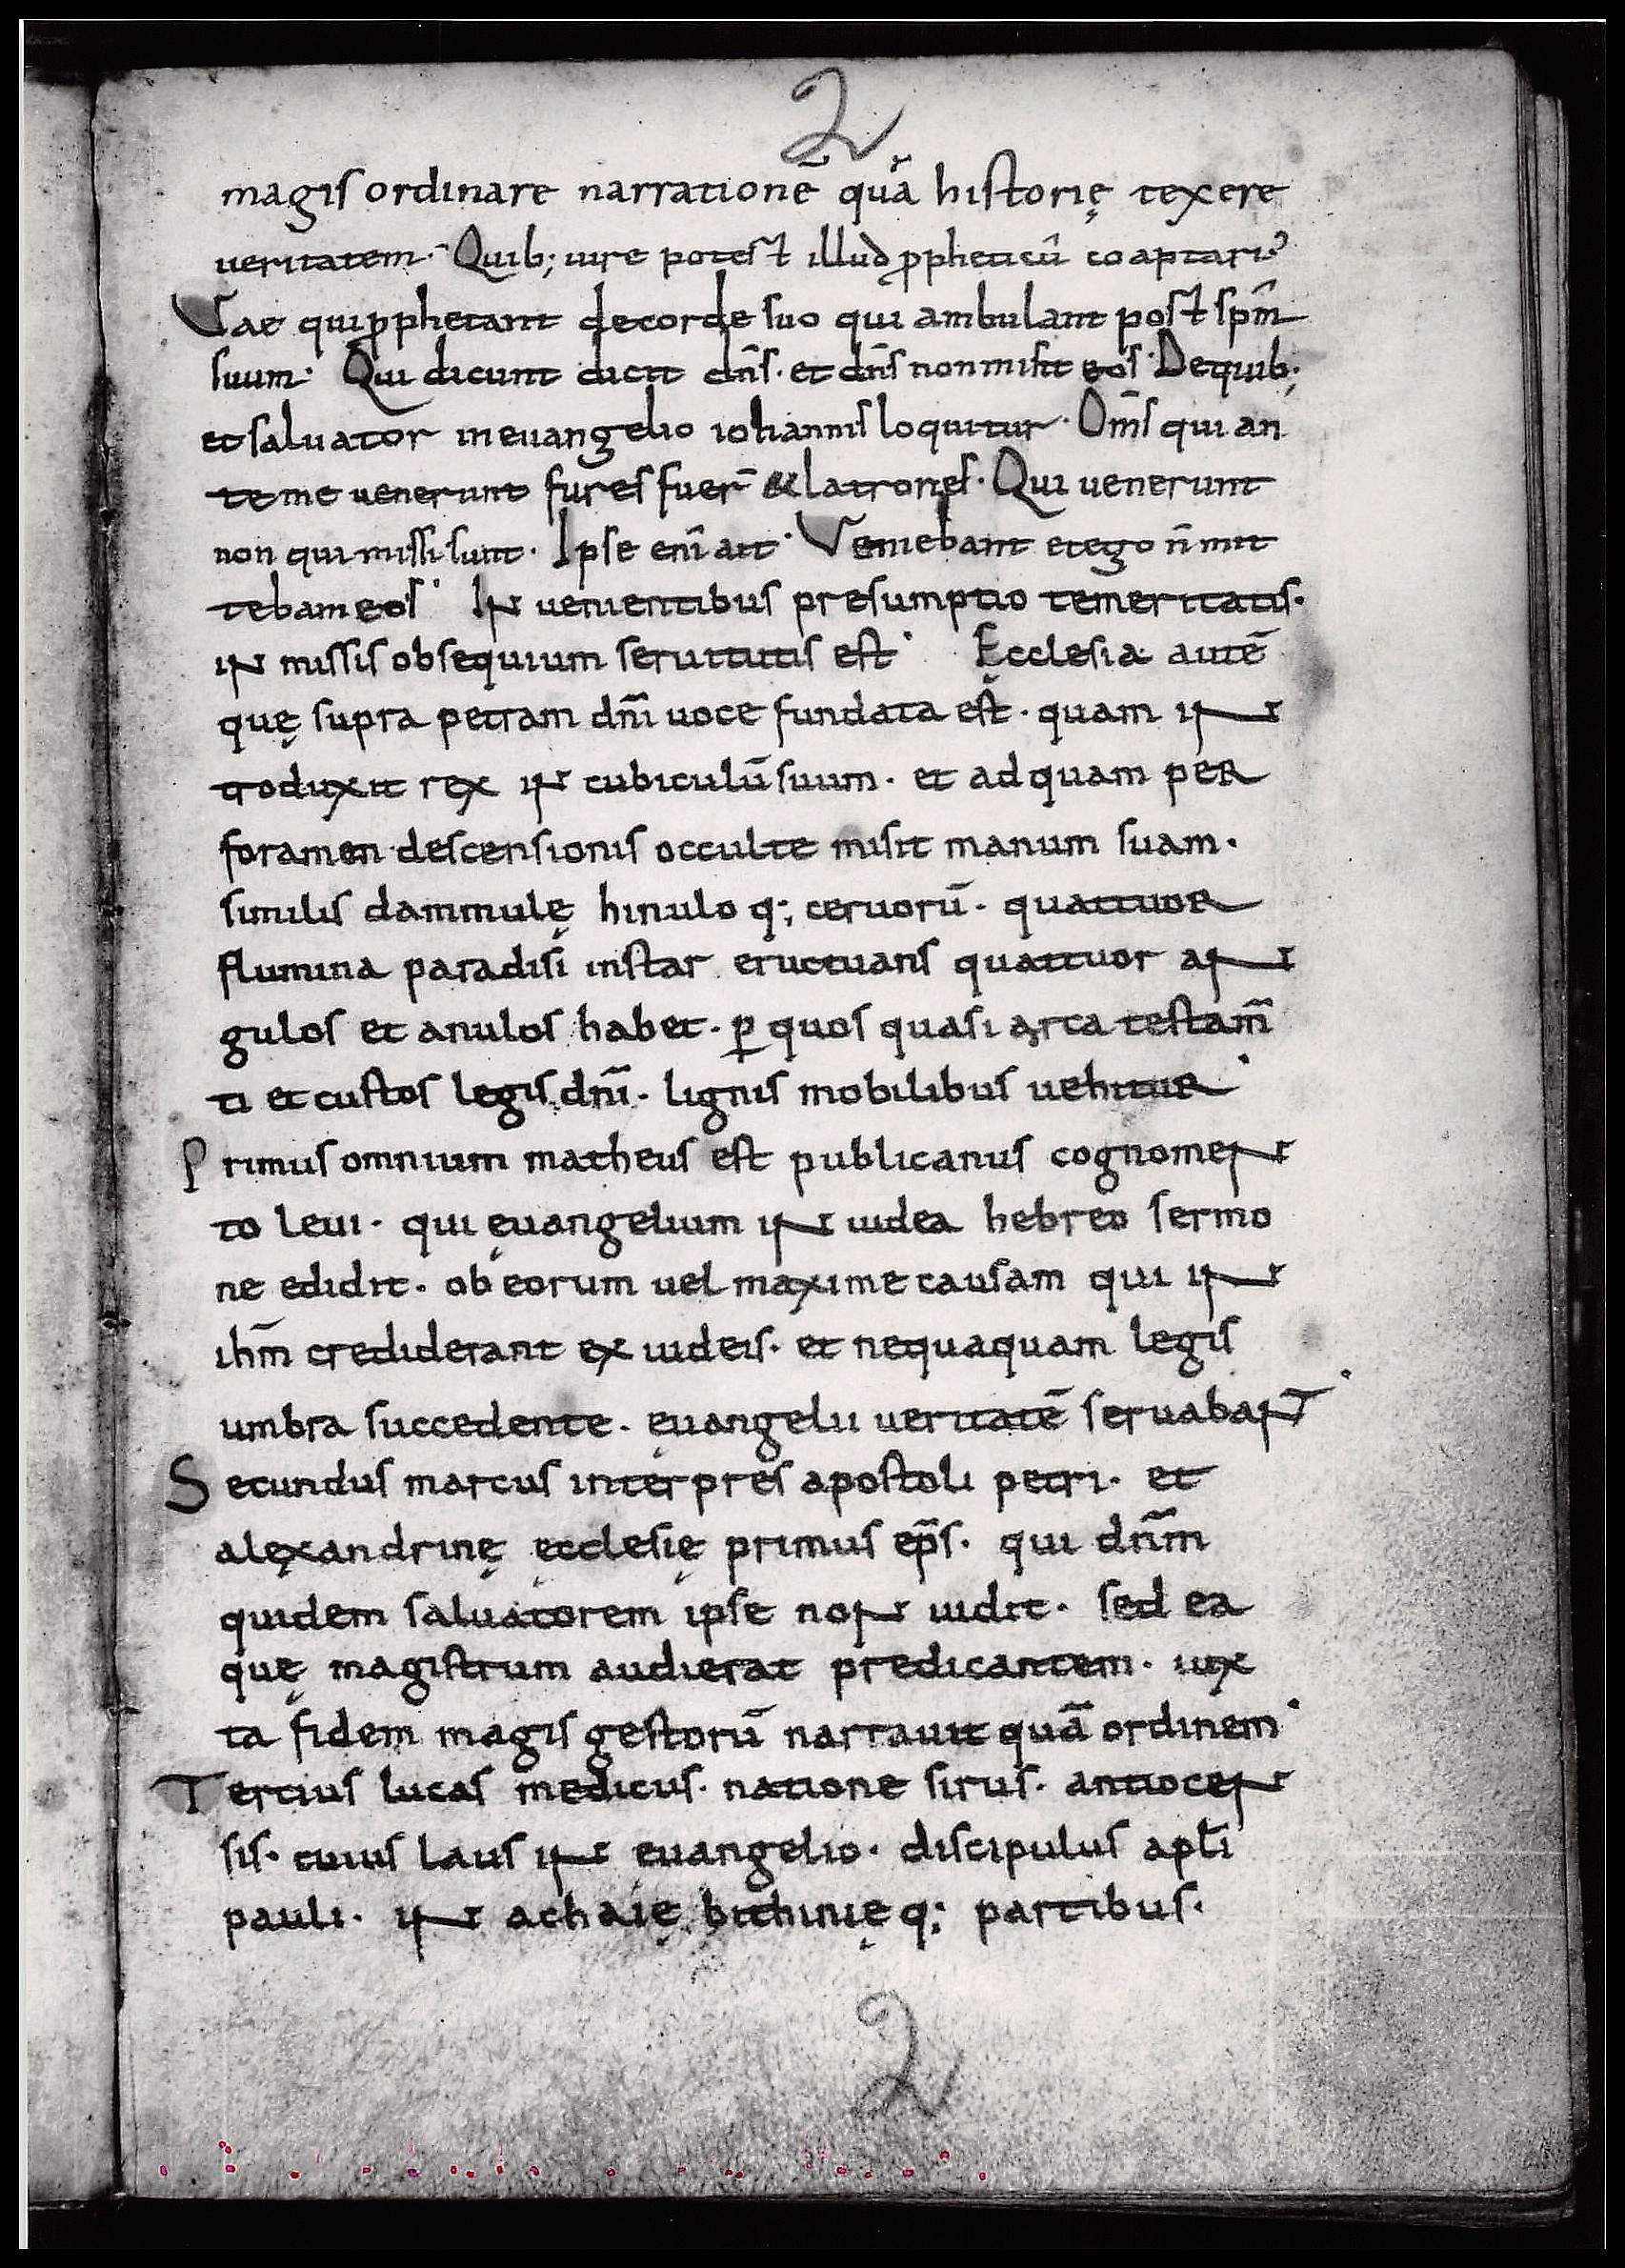 2
magis ordinare narrationē quā historię texere
ueritatem· Quib; iure potest illud ꝓpheticū coaptari?
Vae qui ꝓphetant de corde suo qui ambulant post spm̄
suum· Qui dicunt dicit dn̄s· et dn̄s non misit eos· De quib;
et saluator in euangelio iohannis loquitur· Om̄s qui an
te me uenerunt fures fuer̄ & latrones· Qui uenerunt
non qui missi sunt· Ipse eni̅ ait· Veniebant et ego n̄ mit
tebam eos· In uenientibus presumptio temeritatis·
in missis obsequium seruitutis est· Ecclesia autē
quę supra petram dn̄i uoce fundata est· quam in
troduxit rex in cubiculū suum· et ad quam per
foramen descensionis occulte misit manum suam·
similis dammulę hinulo q; ceruorū· quattuor
flumina paradisi instar eructuans quattuor an
gulos et anulos habet· ꝑ quos quasi arca testam̄
ti et custos legis dn̄i· lignis mobilibus uehitur·
Primus omnium matheus est publicanus cognomen
to leui· qui ęuangelium in iudea hebreo sermo
ne edidit· ob eorum uel maxime causam qui in
ihm̄ crediderant ex iudeis· et nequaquam legis
umbra succedente· ęuangelii ueritatē seruabant·
Secundus marcus interpres apostoli petri· et
alęxandrinę ęcclesię primus ep̄s· qui dn̄m
quidem saluatorem ipse non uidit· sed ea
quę magistrum audierat predicantem· iux
ta fidem magis gestorū narrauit quā ordinem·
Tertius lucas medicus· natione sirus· antiocen
sis· cuius laus in euangelio· discipulus apl̄i
pauli· in achaię bithinię q; partibus·
2